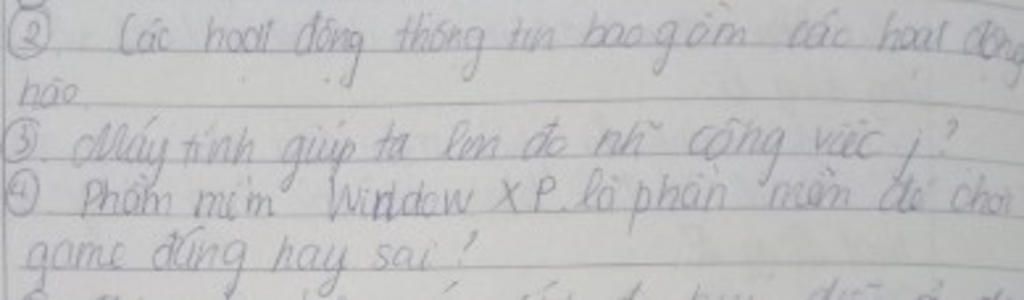 ② Các hoạt động thông tin bao gồm các hoạt động
nào
③. Máy tính giúp ta làm đc nh~ công việc j?
④ Phầm mìm Window XP là phần mềm để chơi
game đúng hay sai?